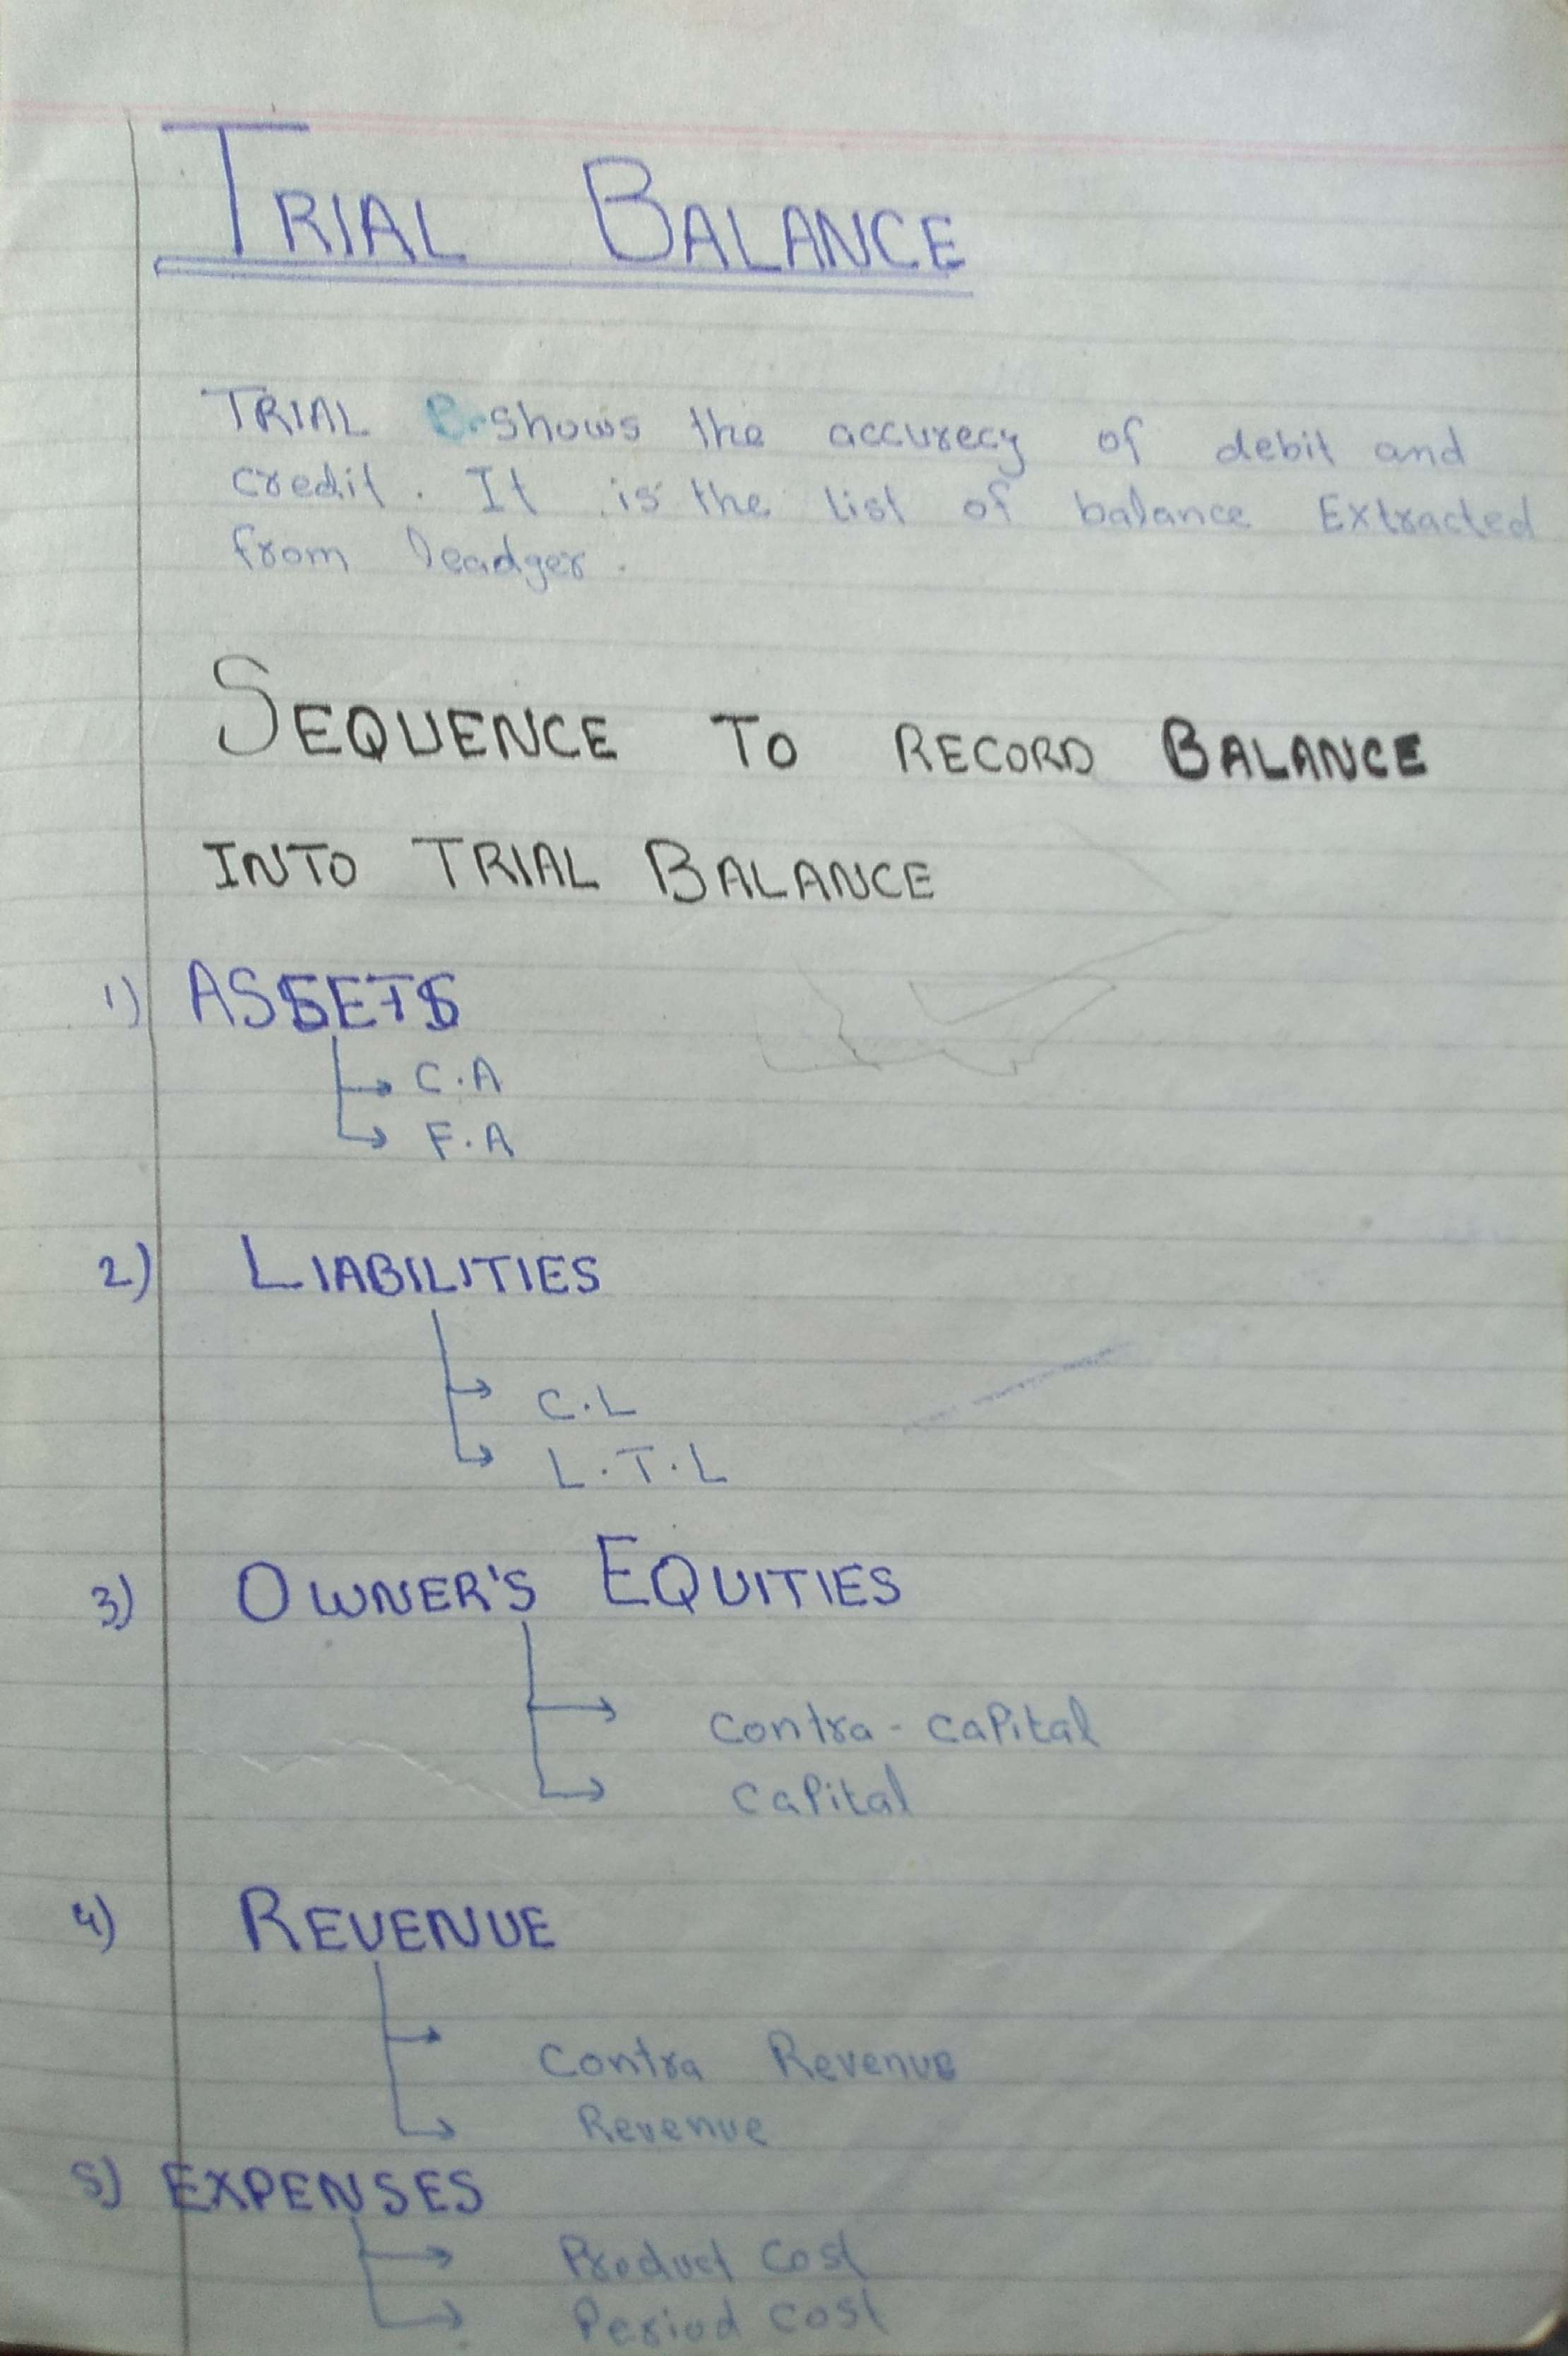 TRIAL BALANCE
TRIAL B. shows the accurecy of debit and
credit. It is the list of balance Extracted
from leadger.
SEQUENCE TO RECORD BALANCE
INTO TRIAL BALANCE
1) ASSETS
C.A
F.A
2) LIABILITIES
C.L
L.T.L
3) OWNER'S EQUITIES
Contra-Capital
Capital
4) REVENUE
Contra Revenue
Revenue
5) EXPENSES
Product Cost
Period Cost